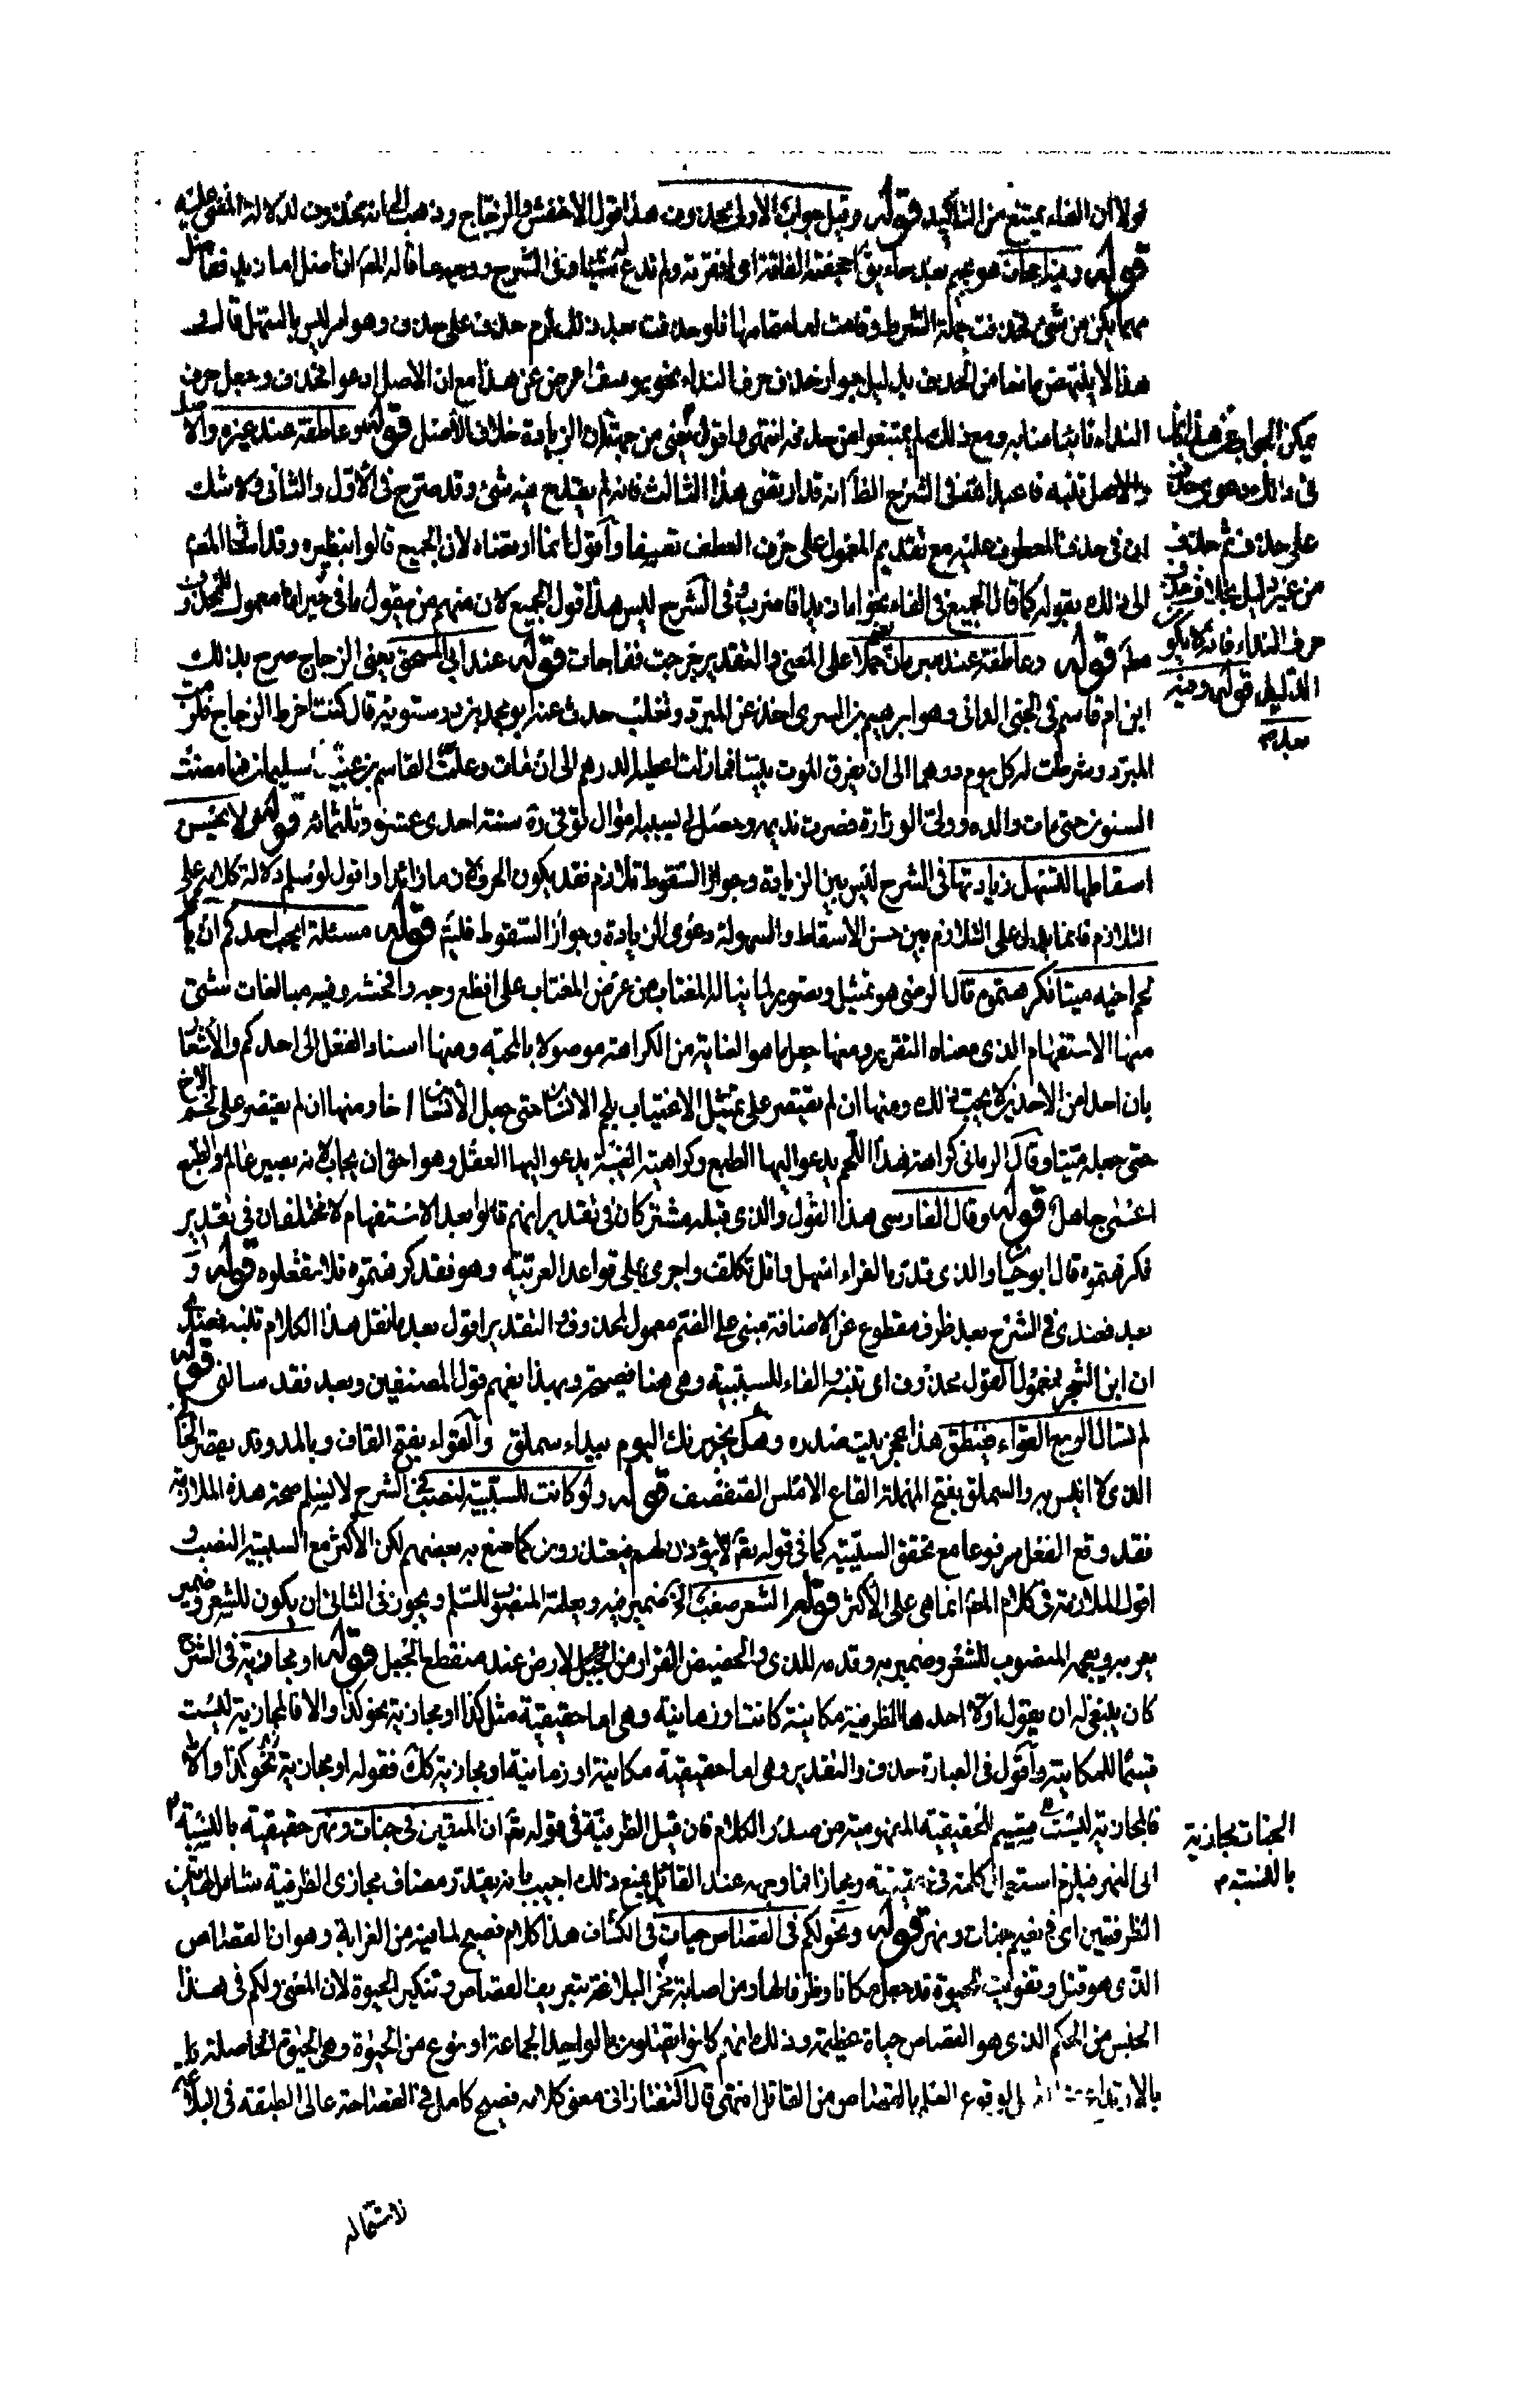 نحو لا ان الفاء يمتنع من التأكيد قوله وقيل جواب الاولى محذوف هذا قول الاخفش والزجاج وذهب الى انه محذوف لدلالة المعنى عليه
مهما يكن من شئ فحذفت جملة الشرط وقامت اما مقامها فلو حذفت بعد ذلك لزم حذف على حذف وهو امر ليس بالسهل قال
هذا لا ينتهض مانعا من الحذف بدليل جواز حذف حرف النداء نحو يوسف اعرض عن هذا مع ان الاصل ادعوا فحذف وجعل حرف
النداء نائبا منابه ومع ذلك لم يمتنعوا من حذفه انتهى واقول يعنى من جهة ان الزيادة خلاف الاصل قوله وعاطفة عند غيره والاصل
والاصل تنبه فاعبد الله فى الشرح الظ انه قد ارتضى هذا الثالث فانه لم يقدح فيه شئ وقد صرح فى الاول والثانى ولا شك
ان فى حذف المعطوف عليه مع تقديم المعمول على حرف العطف تعسفا واقول انما ارتضاه لان الجميع قالوا بنظيره وقد اشار المص
الى ذلك بقوله كما قال الجميع فى الفاء نحو اما زيدا فاضرب فى الشرح ليس هذا قول الجميع لان منهم من يقول ما فى حيز اما معمول للمحذوف
مط قوله وعاطفة عند مبرمان حملا على المعنى والتقدير خرجت ففاجات قوله عند ابى اسحق يعنى الزجاج صرح بذلك
ابن ام قاسم فى الجنى الدانى وهو ابرهيم بن السرى اخذ عن المبرد وثعلب حدث عنه ابو محمد بن درستويه قال كنت اخرط الزجاج فلزمت
المبرد وشرطت له كل يوم درهما الى ان يفرق الموت بيننا فمازلت اعطيه الدرهم الى ان مات وعلمت القاسم بن عبيد الله بن سليمان
السنون حتى مات والده وولى الوزارة فصرت نديمه وحصل لى بسببه اموال توفى رة سنة احدى عشر وثلثمائه قوله ولا يحسن
اسقاطها لتسهل زيادتها فى الشرح ليس بين الزيادة وجواز السقوط تلازم فقد يكون الحرف لازما زائدا واقول لو سلم دلالة كلامه على
التلازم فانما يدل على التلازم بين حسن الاسقاط والسهولة دعوى الزيادة وجواز السقوط فليتم قوله مسئلة ايحب احدكم ان ياكل
لحم اخيه ميتا فكرهتموه قال الرضى هو تمثيل وتصوير لما يناله المغتاب من عرض المغتاب على افظع وجه وافحشه وفيه مبالغات شتى
منها الاستفهام الذى معناه التقرير ومنها جعل ما هو الغاية من الكراهة موصولا بالمحبة ومنها اسناد الفعل الى احدكم والاشعار
بان احدا من الاحدين لا يحب ذلك ومنها ان لم يقتصر على تمثيل الاغتياب بلحم الانسان حتى جعل الانسان اخا ومنها ان لم يقتصر على لحم الاخ
حتى جعله ميتا وقال الرمانى كراهة هذا اللحم يدعو اليها الطبع وكراهية الغيبة يدعو اليها العقل وهو احق ان يجاب لانه بصير عالم والطبع
اعمى جاهل قوله وقال الفارسى هذا القول والذى قبله مشتركان فى تقدير انهم قالوا بعد الاستفهام لا مختلفان فى تقدير
فكرهتموه قال ابو حيان والذى قدره الفراء اسهل واقل تكلف واجرى على قواعد العربية وهو فقد كرهتموه فلا تفعلوه قوله و
بعد فعندى فى الشرح بعد ظرف مقطوع عن الاضافة مبنى على الضم معمول لمحذوف التقدير اقول بعد ما نقل هذا الكلام تنبه فعندى
ان ابن الشجرى فمعمول القول محذوف اى تنبه والفاء للسببية وهى هنا فصيحة وبهذا يفهم قول المصنفين وبعد فقد سالنى قوله
لم تسال الربع القواء فينطق هذا عجز بيت صدره وهل يخبرنك اليوم بيداء سملق والقواء بفتح القاف وبالمد وقد يقصر الخال
الذى لا انيس به والسملق بفتح المهملة القاع الاملس الصفصف قوله ولو كانت للسببية لنصب فى الشرح لا نسلم صحة هذه الملازمة
فقد وقع الفعل مرفوعا مع تحقق السببية كما فى قوله تع لا يؤذن لهم فيعتذرون كما صرح به بعضهم لكن الاكثر مع السببية النصب و
اقول الملازمة فى كلام المص انما هى على الاكثر قوله الشعر صعب الخ ضمير فيه ويعلمه المنصوب للسلم ويجوز فى الثانى ان يكون للشعر وضمير
يعربه ويعجمه المنصوب للشعر وضمير به وقدمه للذى والحضيض القرار من الجبل الارض عند منقطع الجبل قوله او مجازية فى الشرح
كان ينبغى له ان يقول اولا احدها الظرفية مكانية كانت او زمانية وهى اما حقيقية مثل كذا او مجازية نحو كذا والا فالمجازية ليست
قسيما للمكانية واقول فى العبارة حذف والتقدير وهى اما حقيقية مكانية او زمانية او مجازية كك فقوله او مجازية نحو كذا والا
فالمجازية ليست قسيم للحقيقية المفهومة من صدر الكلام فان قيل الظرفية فى قوله تع ان المتقين فى جنات ونهر حقيقية بالنسبة
الى النهر فيلزم استعمال كلمة فى حقيقة ومجازا فما وجهه عند القائل بمنع ذلك اجيب بانه بتقدير مضاف مجازى الظرفية شامل لهاتين
الظرفيتين اى فى نعيم جنات ونهر قوله ونحو لكم فى القصاص حيات فى الكشاف هذا كلام فصيح لما فيه من الغرابة وهو ان القصاص
الذى هو قتل وتفويت للحيوة قد جعل مكانا وظرفا لها ومن اصابة محز البلاغة بتعريف القصاص وتنكير الحيوة لان المعنى ولكم فى هذا
الجنس من الحكم الذى هو القصاص حياة عظيمة وذلك انهم كانوا يقتلون بالواحد الجماعة او نوع من الحيوة وهى الحيوة الحاصلة
بالارتداع لوقوع العلم بالقصاص من القاتل انتهى قال التفتازانى معنى كلامه فصيح كامل فى الفصاحة عالى الطبقة فى البلاغة
لاشتماله
يمكن الجواب عن هذا بان
على حذف ثم حذف
من غير دليل بخلاف حذف
حرف النداء فانه لا يكون
الدليل قوله وفيه
بعد
الجنات مجازية
بالنسبة